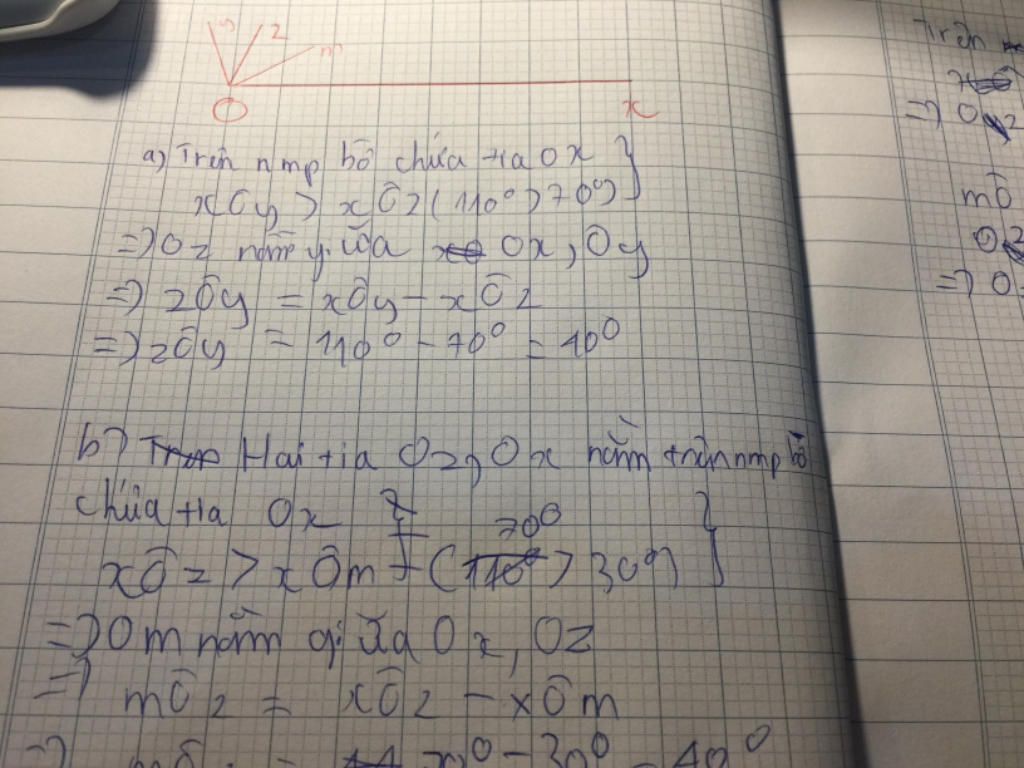 y z m
O x
a) Trên nmp bờ chứa tia Ox }
xÔy > xÔz (110° > 70°)
=> Oz nằm giữa Ox, Oy
=> zÔy = xÔy - xÔz
=> zÔy = 110° - 70° = 40°
b) Hai tia Oz, Ox nằm trên nmp bờ
chứa tia Ox }
70°
xÔz > xÔm (110° > 30°)
=> Om nằm giữa Ox, Oz
=> mÔz = xÔz - xÔm
=> 70° - 30° = 40°
Trên
=> Oz
mÔ
Oz
=> O